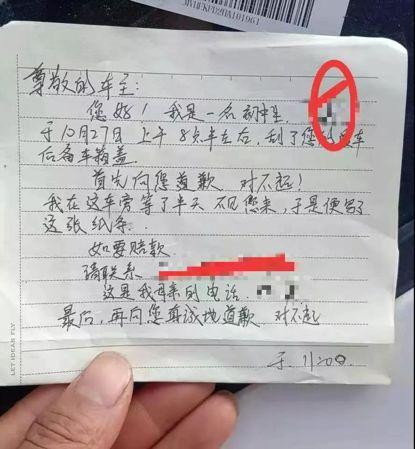 尊敬的车主:
您好！我是一名初中生
于10月27日 上午 8点半左右, 刮了您的车
后备车箱盖
首先向您道歉 对不起!
我在这车旁等了半天 不见您来, 于是便写了
这张纸条.
如要赔款
请联系
这是我母亲的电话.
最后, 再向您真诚地道歉 对不起
于 11:20
LET IDEAS FLY